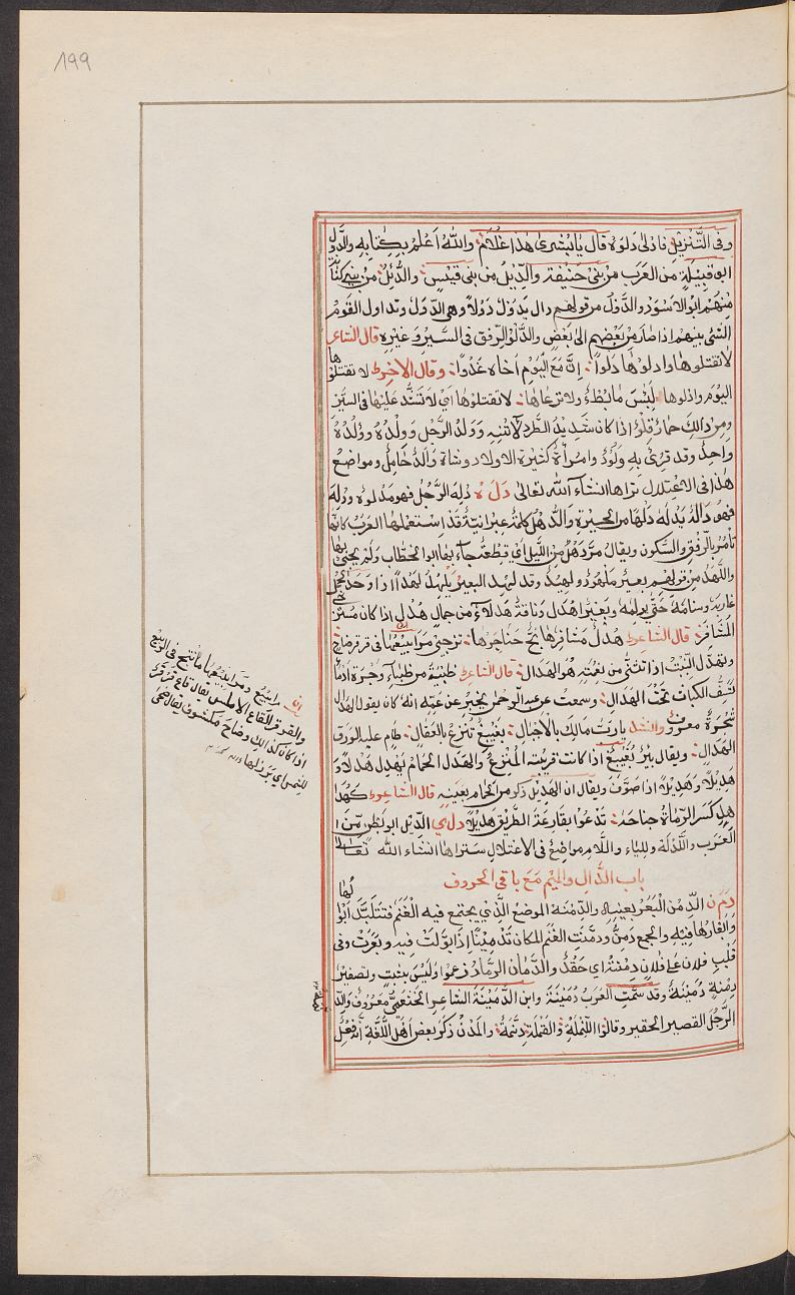 ١٩٩
وفى التنزيل فادلى دلوه قال يابشرى هذا غلام والله اعلم بكتابه والدول
ابو قبيلة من العرب من بنى حنيفة والديل من بنى قيس والدئل من بنى كنانة
منهم ابو الاسود والدول من قولهم دال يدول دولا وهى الدول وتداول القوم
الشئ بينهم اذا صار من بعضهم الى بعض والدلو الرفق فى السير وغيره قال الشاعر
لا تقتلوها وادلوها دلوا ان مع اليوم اخاه غدوا وقال الاخر لا تقتلوها
اليوم وادلوها لبئس ما بطء ولا نرعاها لا تقتلوها اى لا تشتد عليها فى السير
ومن ذلك حمار قلو اذا كان شديد الطرد لاتنه وولد الرجل وولده وولده
واحد وقد قرئ به ولود وامرأة كثيرة الاولاد وشاة والد حامل ومواضع
هذا فى الاعتلال تراها انشاء الله تعالى د ل ه دله الرجل فهو مدلوه ودله
فهو داله يدله دلها من الحيرة والدهل كلمة عبرانية قد استعملها العرب كانها
تأمر بالرفق والسكون ويقال مر دهل من الليل اى قطعة جاء بها ابو الخطاب ولم يجئ بها
واللهد من قولهم بعير ملهود ولهيد وقد لهد البعير يلهد لهدا اذا وخد الحمل
غاربه وسنامه حتى يولمه وبعير اهدل وناقة هدلاء من جمال هدل اذا كان مسترخى
المشافر قال الشاعر هدل مشافرها بح حناجرها تزجى مرابيعها فى قرقر ضاح
وتهدل النبت اذا تثنى من نعمته هو الهدال قال الشاعر ظبية من ظباء وجرة ادماء
تسف الكباث تحت الهدال وسمعت عبد الرحمن يخبر عن عمه انه كان يقول الهدال
شجرة معروفة وانشد يارب ماء لك بالاجبال بغيبغ تنزع بالعقال طام عليه ورق
الهدال ويقال بئر بغيبغ اذا كانت قريبة المنزع والهدل الحمام يهدل هدلا و
هديلا وهديلا اذا صوت ويقال ان الهديل ذكر من الحمام بعينه قال الشاعر كهداهد
كسر الرماة جناحه تدعوا بقارعة الطريق هديلا د ل ي الديل ابو بطن من
العرب وللدله ولليآء واللام مواضع فى الاعتلال ستراها انشاء الله تعالى
باب الدال والميم مع باقى الحروف
د م ن الدمن البعر بعينه والدمنة الموضع الذى يجتمع فيه الغنم فتتلبد ابوالها
وابعارها فيه والجمع دمن ودمنت الغنم المكان تدمينا اذا بولت فيه وبعرت وفى
قلب فلان على فلان دمنة اى حقد والدمان الرماد زعموا وليس بثبت وتصغير
دمنة دمينة وقد سمت العرب دمينة وابن الدمينة الشاعر الخثعمى معروف
الرجل القصير الحقير وقالوا للنملة والقملة دنمة والمدن ذكر بعض اهل اللغة انه فعل
مرابيع ومرابيعها ما نتج فى الربيع
والقرقر القاع الاملس يقال قاع قرقر
اذا كان كذلك وضاح مكشوف يقال ضحى
للشمس اى برز لها